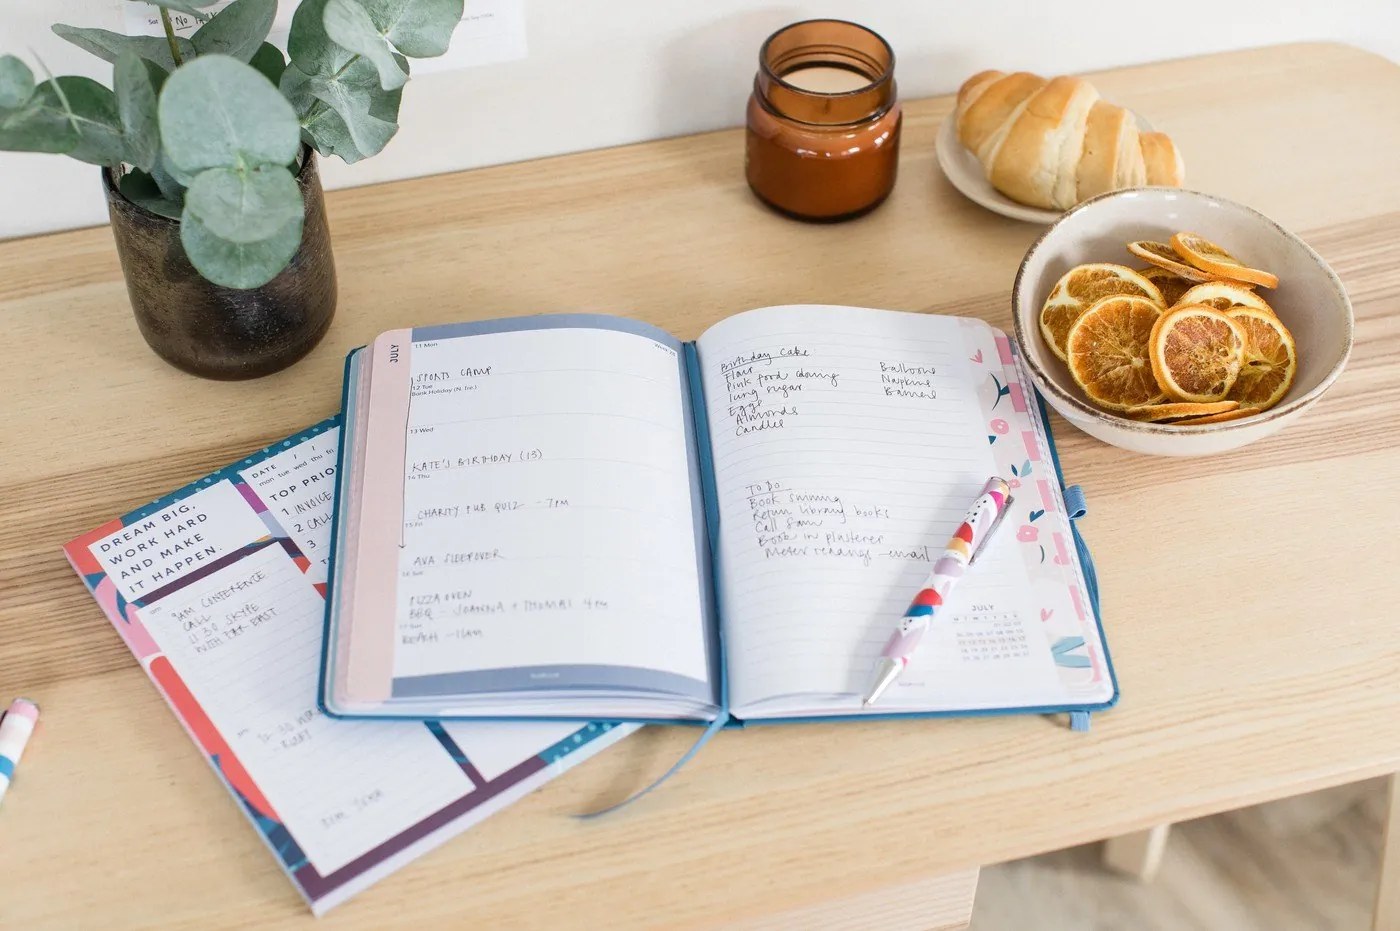 No
JULY
11 Mon
SPORTS CAMP
12 Tue
Bank Holiday (N. Ire.)
13 Wed
KATE'S BIRTHDAY (13)
14 Thu
CHARITY PUB QUIZ - 7PM
15 Fri
AVA SLEEPOVER
16 Sat
PIZZA OVEN
BBQ - JOANNA + THOMAS 4PM
17 Sun
BEACH - 11AM
Birthday Cake
Flour
Pink food coloring
Icing sugar
Eggs
Almonds
Candles
Balloons
Napkins
Banners
To Do
Book swimming
Return library books
Call Sam
Book in plasterer
Meter readings - email
JULY
DATE / /
mon tue wed thu fri
TOP PRIO
1 INVOICE
2 CALL
3
DREAM BIG,
WORK HARD
AND MAKE
IT HAPPEN.
am
9AM CONFERENCE
CALL
11 30 SKYPE
WITH
pm
12 30